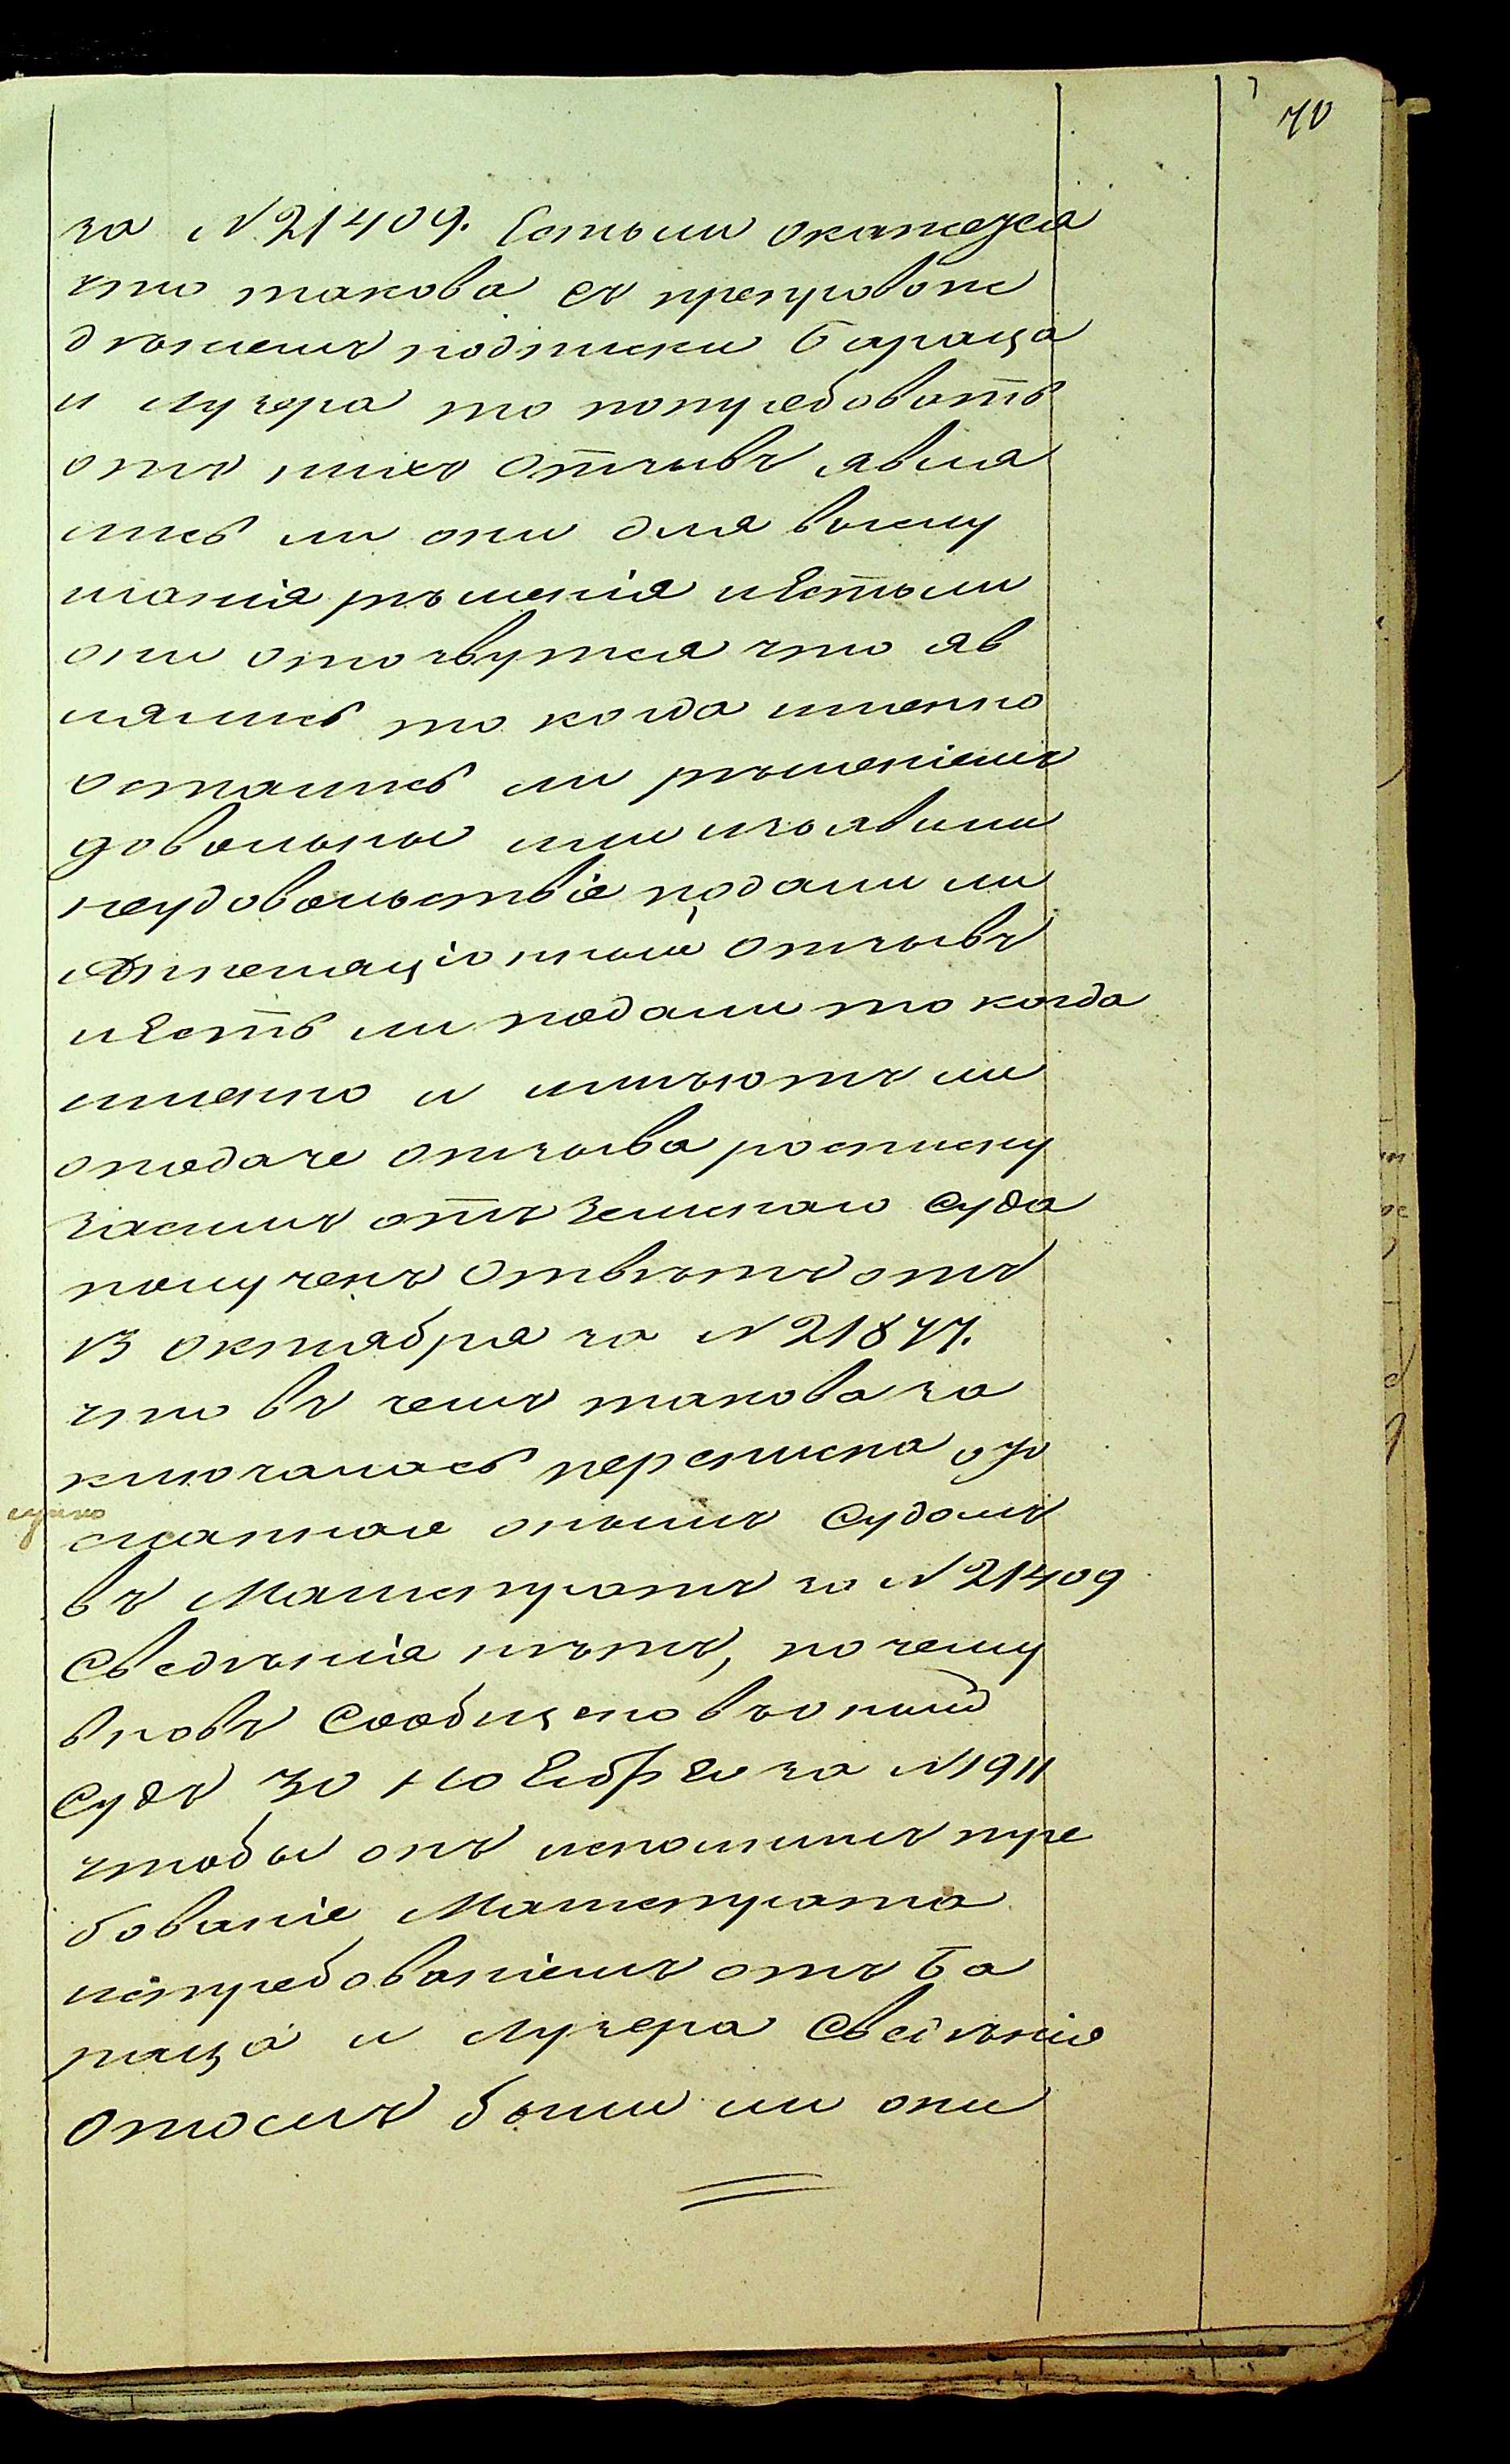 70
за N 21409. Естьли окажеся
что такова съ препровож
дѣнiемъ подписки Бараца
и Лузера то потребовать
отъ нихъ отзывъ явля
лись ли они для выслу
шанiя рѣшенiя и Естьли
они отозвутся что яв
лялись то когда именно
остались ли рѣшенiемъ
довольны или изъявили
неудовольствiе подали ли
Аппелляцiонный отзывъ
и Есть ли подали то когда
именно и имѣютъ ли
о подаче отзыва росписку
засимъ отъ Земскаго Суда
полученъ Отвѣтъ отъ
13 октября за N 21877.
что въ чемъ такова за
ключалась переписка ото
сланная онымъ Судомъ
въ Магистратъ за N 21409
Сведѣнiя нѣтъ, по чему
вновь Сообщено въ оный
Судъ 30 Ноября за N 1911
чтобы онъ исполнилъ тре
бованiе Магистрата
истребованiемъ отъ Ба
раца и Лузера Сведѣнiе
отосемъ были ли они